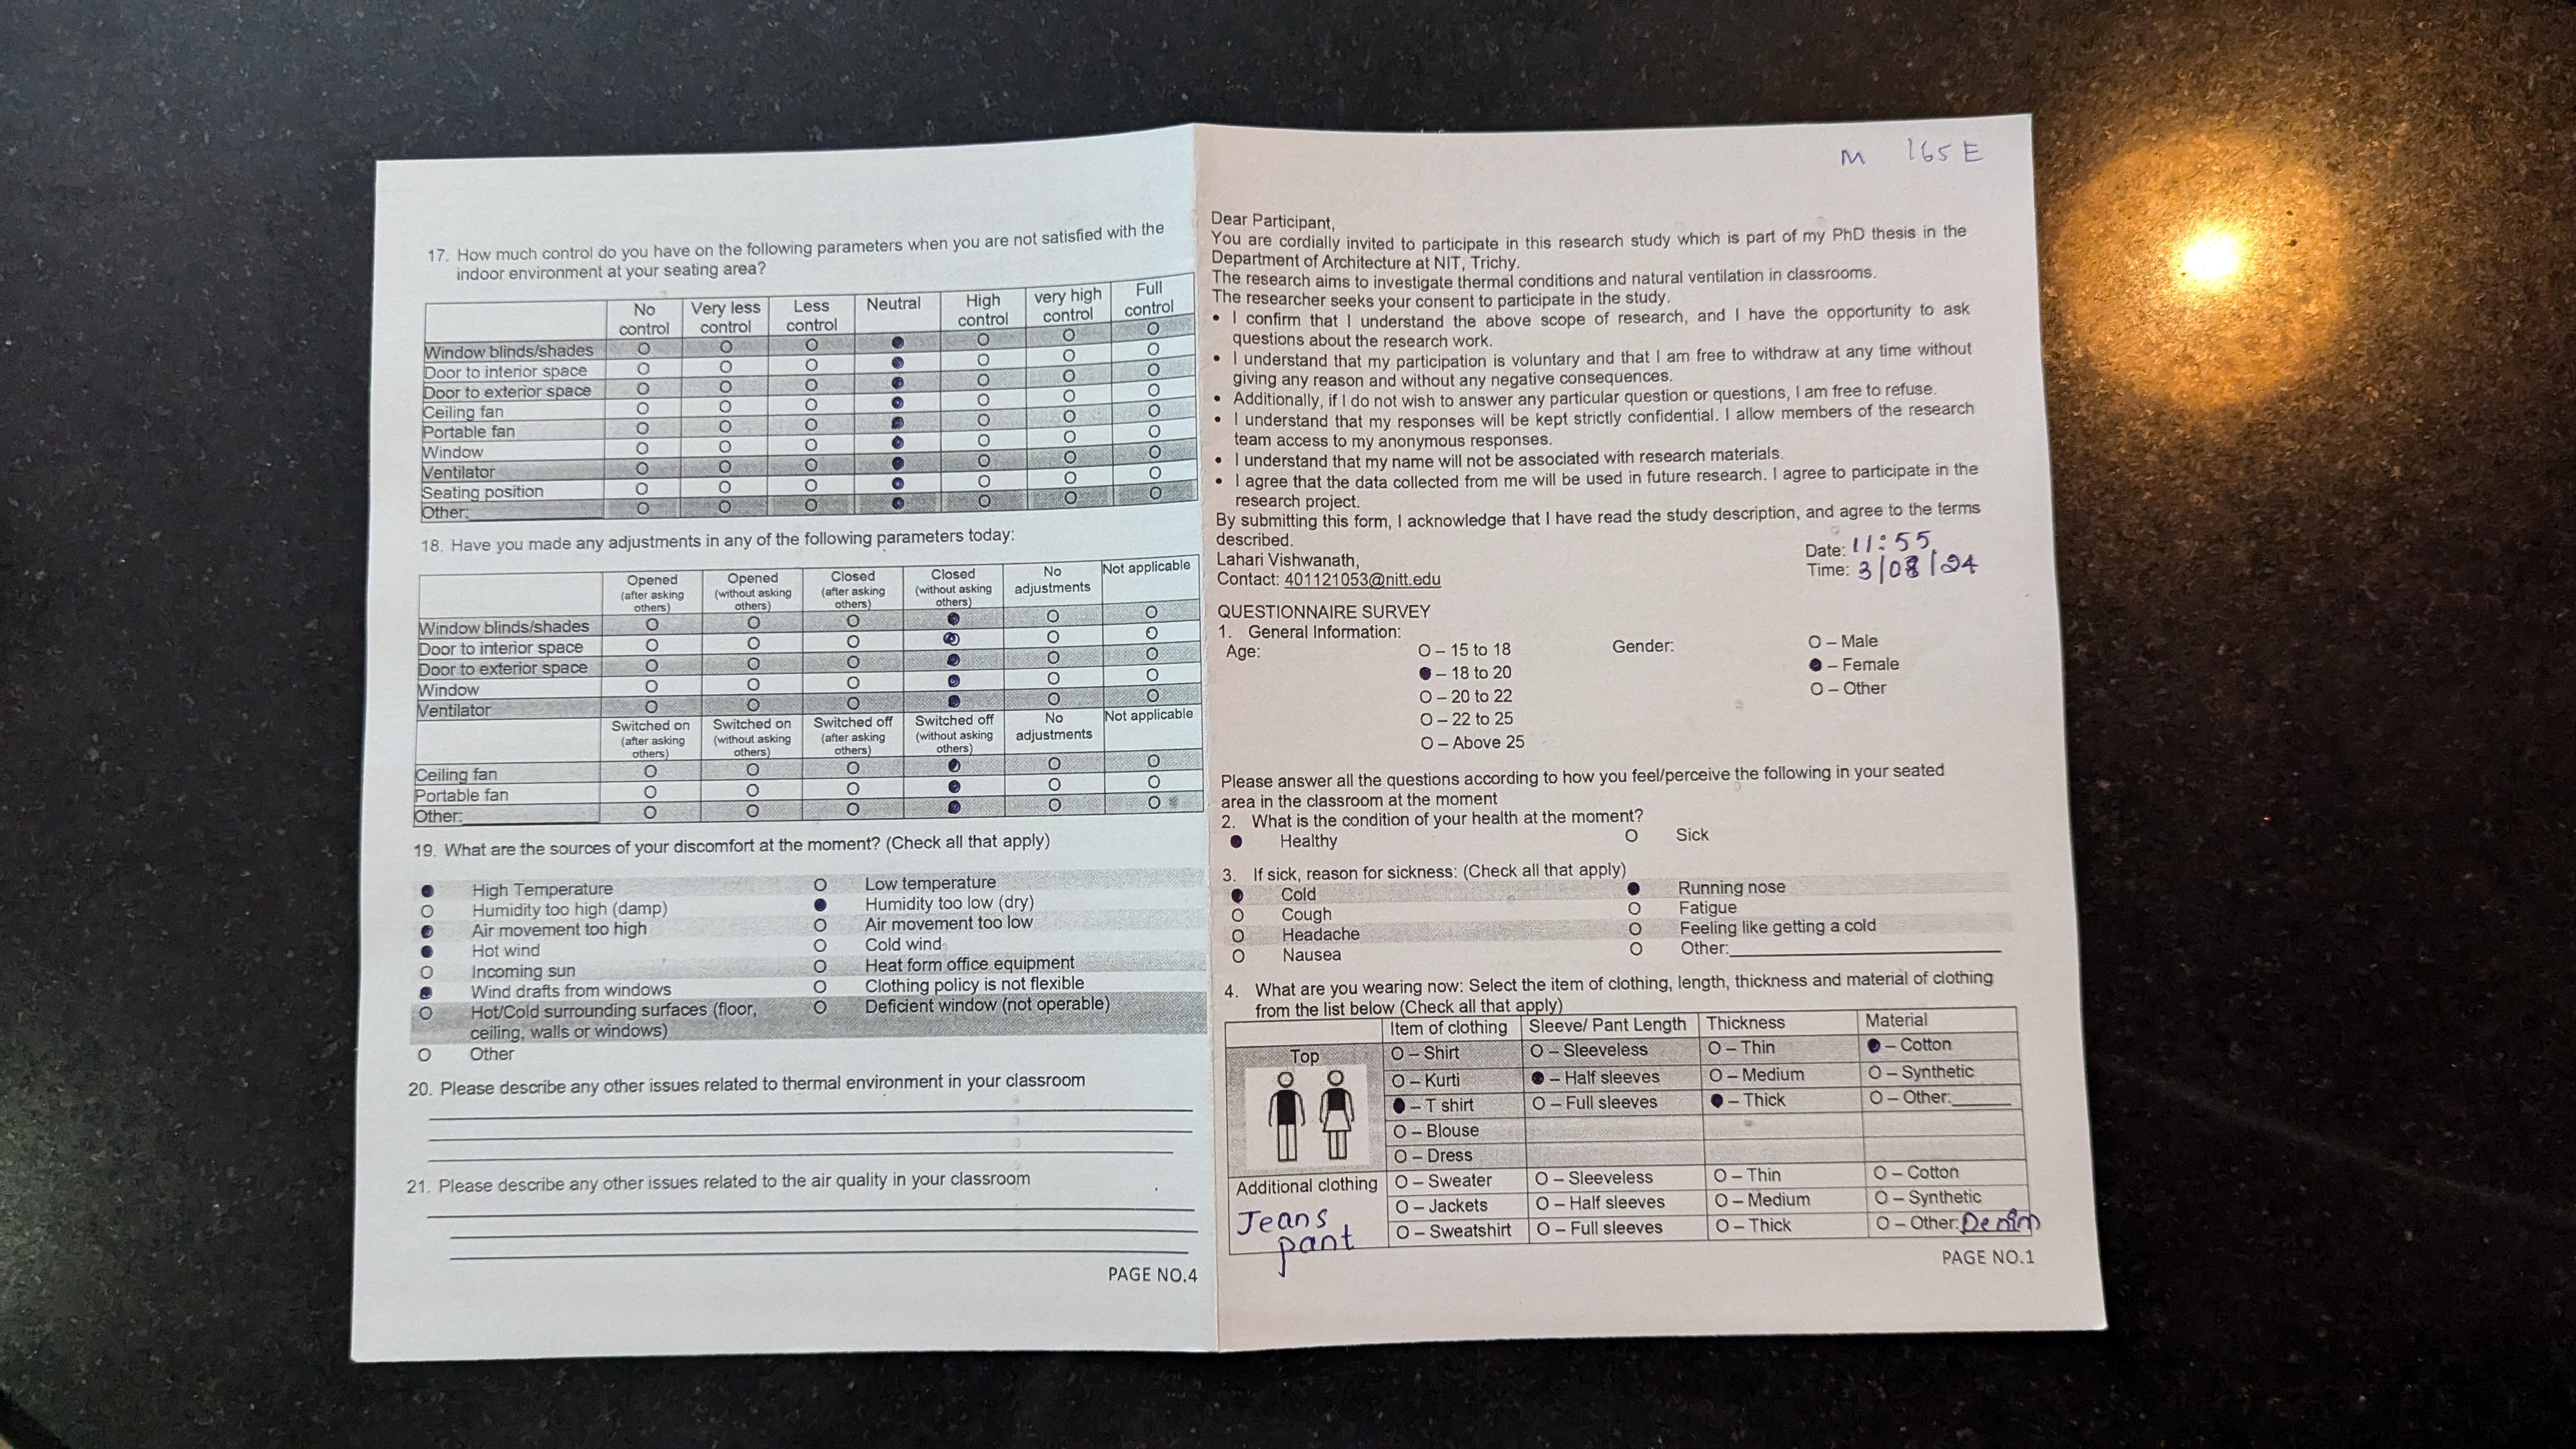 17. How much control do you have on the following parameters when you are not satisfied with the
indoor environment at your seating area?
No control Very less control Less control Neutral High control very high control Full control
Window blinds/shades O O O ● O O O
Door to interior space O O O ● O O O
Door to exterior space O O O ● O O O
Ceiling fan O O O ● O O O
Portable fan O O O ● O O O
Window O O O ● O O O
Ventilator O O O ● O O O
Seating position O O O ● O O O
Other: O O O ● O O O
18. Have you made any adjustments in any of the following parameters today:
Opened (after asking others) Opened (without asking others) Closed (after asking others) Closed (without asking others) No adjustments Not applicable
Window blinds/shades O O O ● O O
Door to interior space O O O ● O O
Door to exterior space O O O ● O O
Window O O O ● O O
Ventilator O O O ● O O
Switched on (after asking others) Switched on (without asking others) Switched off (after asking others) Switched off (without asking others) No adjustments Not applicable
Ceiling fan O O O ● O O
Portable fan O O O ● O O
Other: O O O ● O O
19. What are the sources of your discomfort at the moment? (Check all that apply)
● High Temperature O Low temperature
O Humidity too high (damp) ● Humidity too low (dry)
● Air movement too high O Air movement too low
● Hot wind O Cold wind
O Incoming sun O Heat form office equipment
● Wind drafts from windows O Clothing policy is not flexible
O Hot/Cold surrounding surfaces (floor, O Deficient window (not operable)
ceiling, walls or windows)
O Other
20. Please describe any other issues related to thermal environment in your classroom
21. Please describe any other issues related to the air quality in your classroom
PAGE NO.4
M 165 E
Dear Participant,
You are cordially invited to participate in this research study which is part of my PhD thesis in the
Department of Architecture at NIT, Trichy.
The research aims to investigate thermal conditions and natural ventilation in classrooms.
The researcher seeks your consent to participate in the study.
• I confirm that I understand the above scope of research, and I have the opportunity to ask
questions about the research work.
• I understand that my participation is voluntary and that I am free to withdraw at any time without
giving any reason and without any negative consequences.
• Additionally, if I do not wish to answer any particular question or questions, I am free to refuse.
• I understand that my responses will be kept strictly confidential. I allow members of the research
team access to my anonymous responses.
• I understand that my name will not be associated with research materials.
• I agree that the data collected from me will be used in future research. I agree to participate in the
research project.
By submitting this form, I acknowledge that I have read the study description, and agree to the terms
described.
Lahari Vishwanath,
Contact: 401121053@nitt.edu
Date: 11:55
Time: 3/08/24
QUESTIONNAIRE SURVEY
1. General Information:
Age: O – 15 to 18 Gender: O – Male
● – 18 to 20 ● – Female
O – 20 to 22 O – Other
O – 22 to 25
O – Above 25
Please answer all the questions according to how you feel/perceive the following in your seated
area in the classroom at the moment
2. What is the condition of your health at the moment?
● Healthy O Sick
3. If sick, reason for sickness: (Check all that apply)
● Cold ● Running nose
O Cough O Fatigue
O Headache O Feeling like getting a cold
O Nausea O Other:
4. What are you wearing now: Select the item of clothing, length, thickness and material of clothing
from the list below (Check all that apply)
Item of clothing Sleeve/ Pant Length Thickness Material
Top O – Shirt O – Sleeveless O – Thin ● – Cotton
O – Kurti ● – Half sleeves O – Medium O – Synthetic
● – T shirt O – Full sleeves ● – Thick O – Other:
O – Blouse
O – Dress
Additional clothing O – Sweater O – Sleeveless O – Thin O – Cotton
Jeans O – Jackets O – Half sleeves O – Medium O – Synthetic
pant O – Sweatshirt O – Full sleeves O – Thick O – Other: Denim
PAGE NO.1